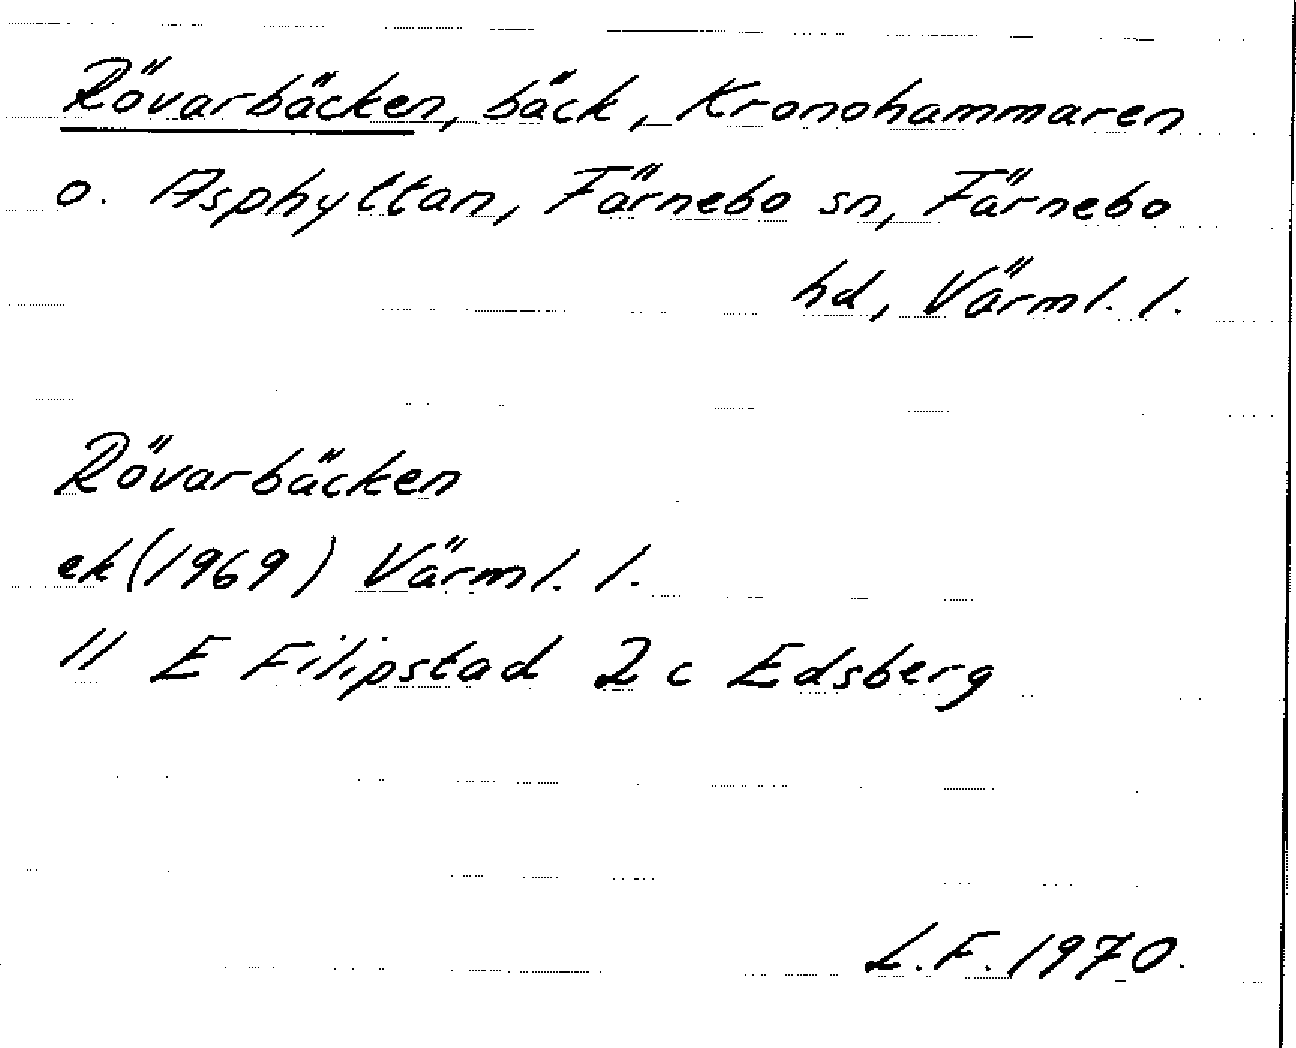 Rövarbäcken, bäck, Kronohammaren
o. Asphyttan, Färnebo sn, Färnebo
hd, Värml. l.
Rövarbäcken
ek (1969) Värml. l.
11 E Filipstad 2 c Edsberg
L.F. 1970.